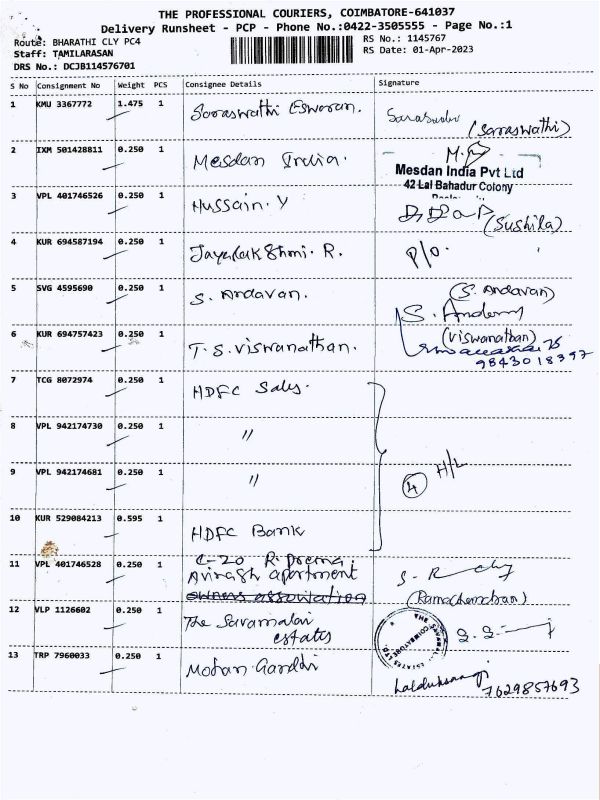 THE PROFESSIONAL COURIERS, COIMBATORE-641037
Delivery Runsheet - PCP - Phone No.:0422-3505555 - Page No.:1
Route: BHARATHI CLY PC4
RS No.: 1145767
Staff: TAMILARASAN
RS Date: 01-Apr-2023
DRS No.: DCJB114576701
S No Consignment No Weight PCS Consignee Details Signature
1 KMU 3367772 1.475 1 Saraswathi Eswaran. (Saraswathi)
2 IXM 501428811 0.250 1 Mesdan India.
Mesdan India Pvt Ltd
42 Lal Bahadur Colony
3 VPL 401746526 0.250 1 Hussain. Y (Sushila)
4 KUR 694587194 0.250 1 Jayalakshmi. R. P/O.
5 SVG 4595690 0.250 1 S. Andavan. (S. Andavan)
6 KUR 694757423 0.250 1 T.S. Viswanathan. (Viswanathan)
9843018397
7 TCG 8072974 0.250 1 HDFC Sales.
8 VPL 942174730 0.250 1 "
9 VPL 942174681 0.250 1 " 4 H/L
10 KUR 529084213 0.595 1 HDFC Bank
11 VPL 401746528 0.250 1 C-20 R. Prema,
Avinash apartment
owners association (Ramachandran)
12 VLP 1126602 0.250 1 The Savamalai
estates
13 TRP 7960033 0.250 1 Mohan Gandhi
7629857693